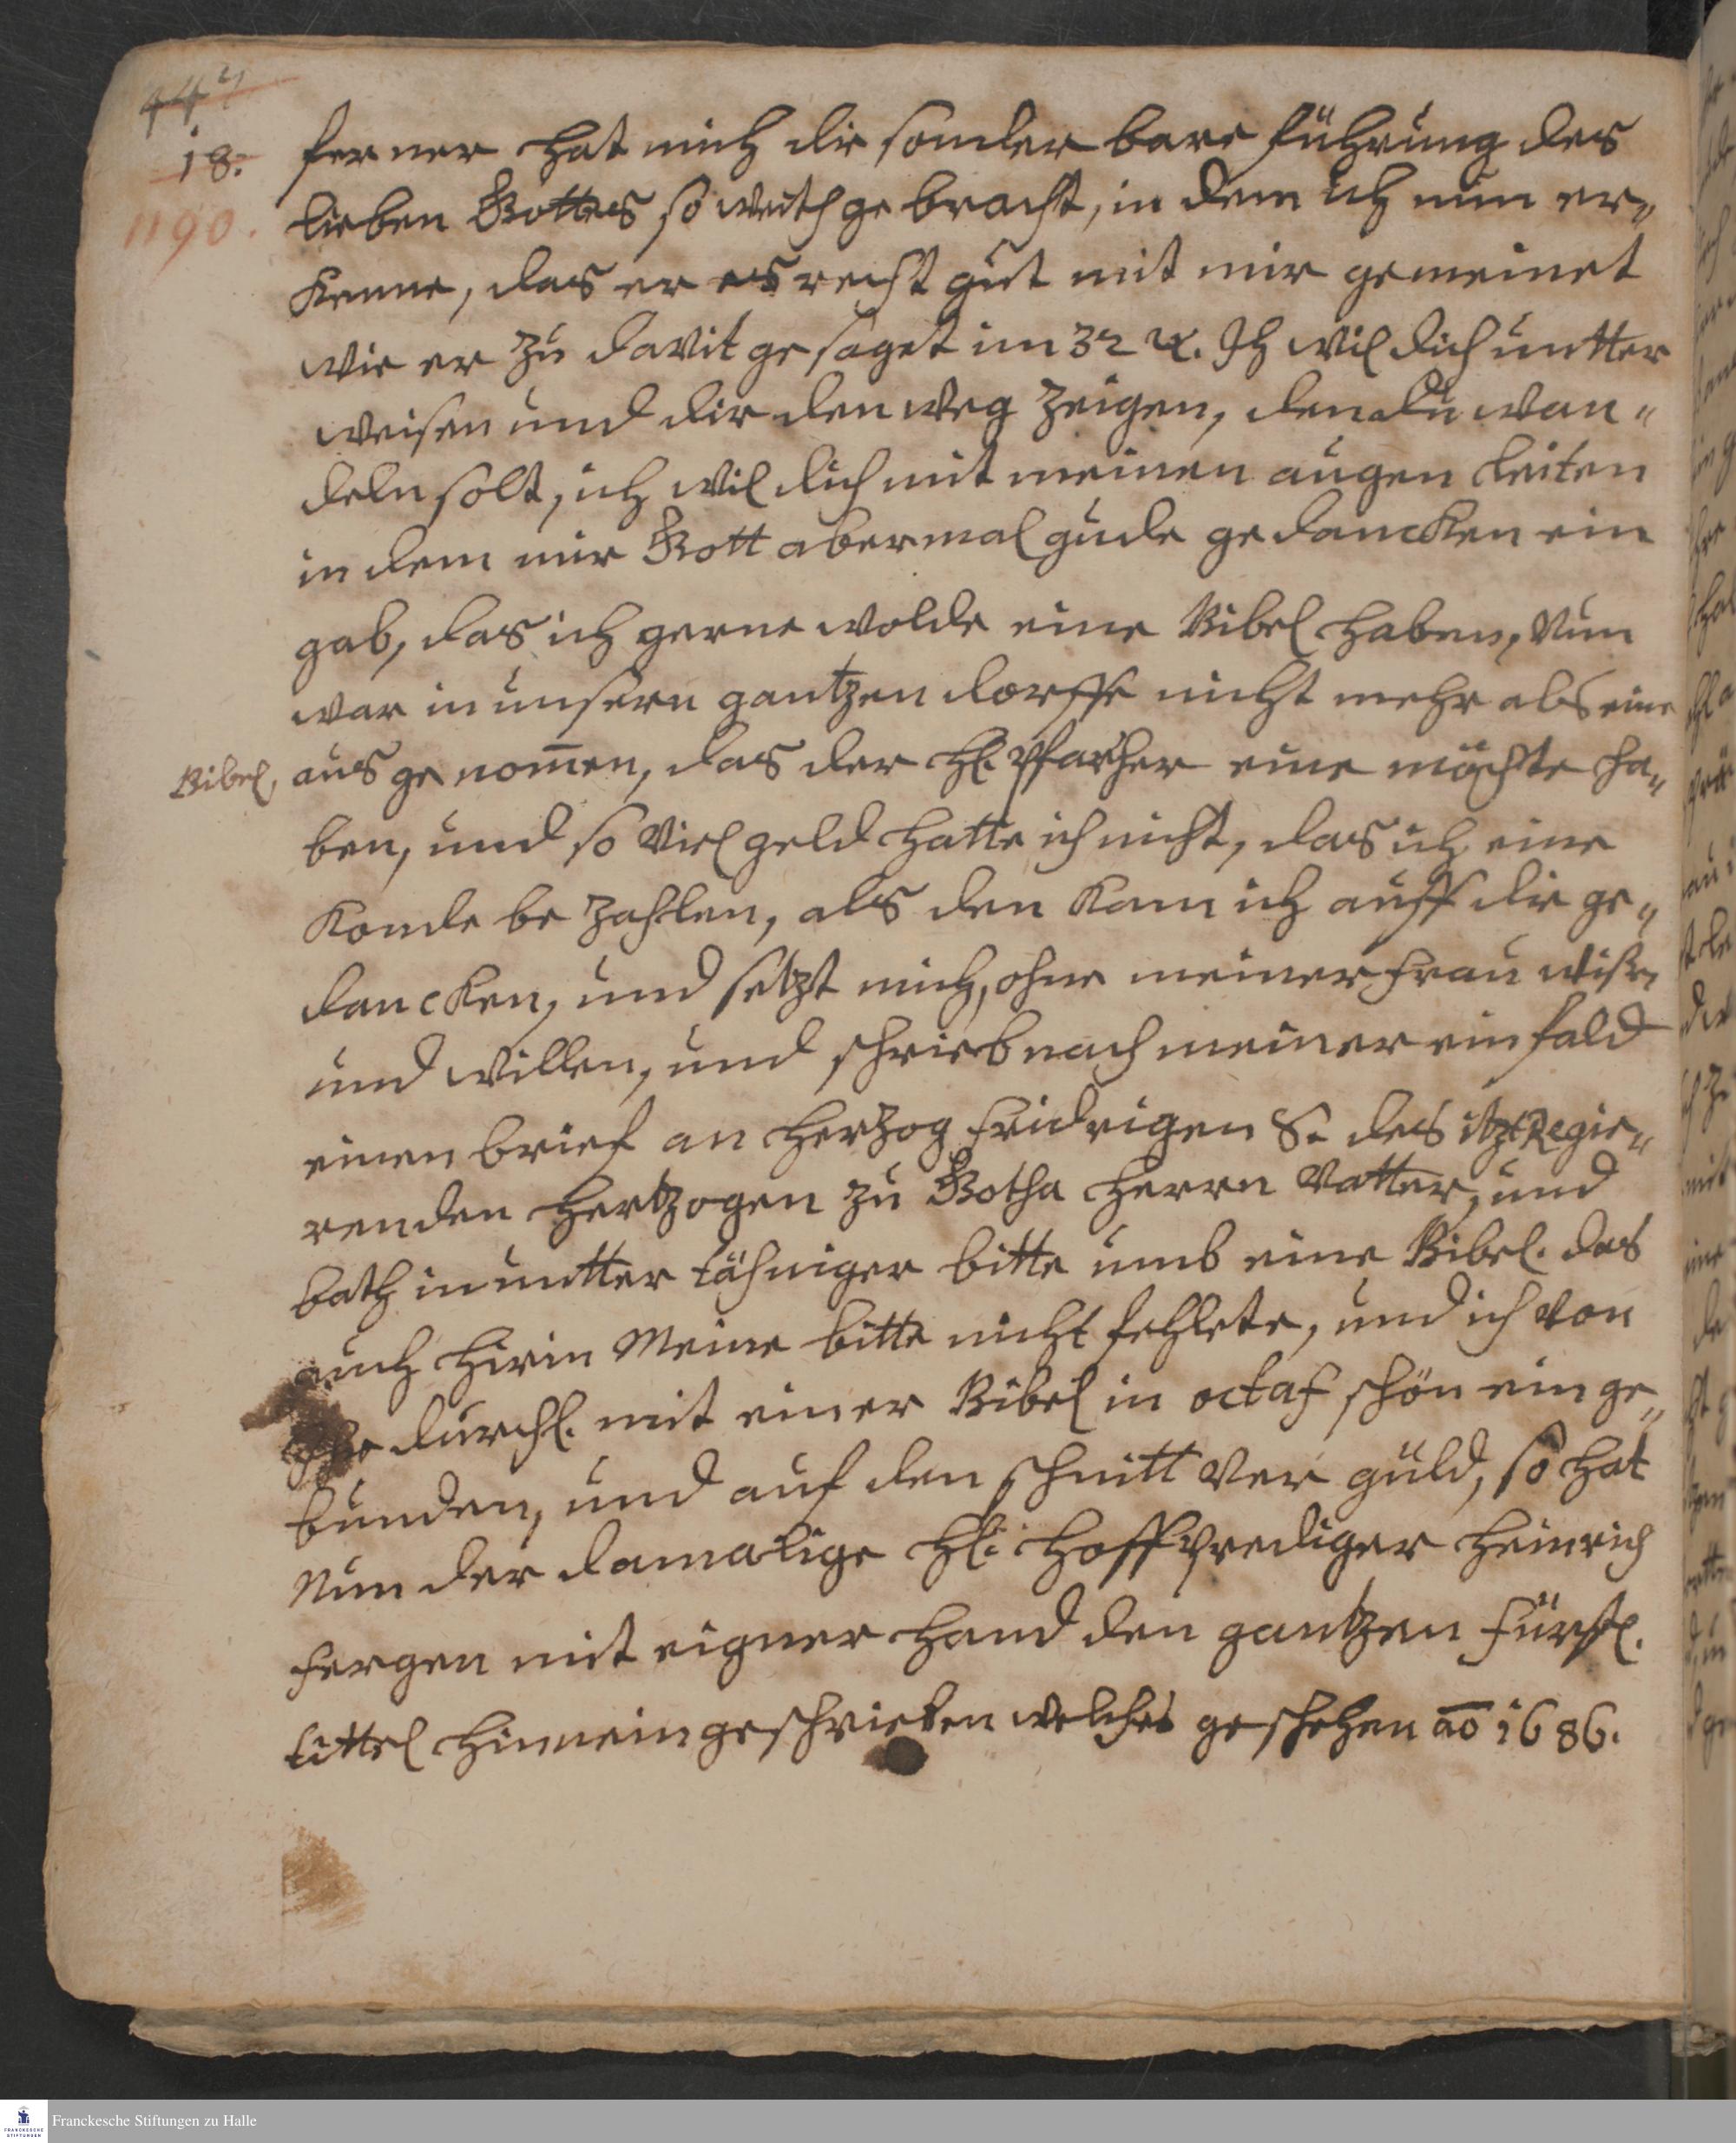 442
18.
1190.
ferner hat mich die sonder bare führung des
lieben Gottes so weith ge bracht, in dem ich nun er„
kenne, das er es recht gut mit mir gemeinet
wie er zu Davit ge saget im 32 ψ. Ich wil dich untter
weisen und dir den weg zeigen, den du wan„
deln solt, ich wil dich mit meinen augen leiten
in dem mir Gott abermal gude ge dancken ein
gab, das ich gerne wolde eine Bibel haben, Nun
war in unsern gantzen dorffe nicht mehr als eine
Bibel, aus ge nom̅en, das der H. pfarher eine möchte ha„
ben, und so viel geld hatte ich nicht, das ich eine
konde be zahlen, als den kam ich auff die ge„
dancken, und setzt mich, ohne meiner frau wißen
und willen, und schrieb nach meiner ein fald
einen brief an Hertzog Fridrigen S. des itzt Regie„
renden Hertzogen zu Gotha Herrn Vatter, und
bath in untter tähniger bitte umb eine Bibel. das
auch hirin Meine bitte nicht fehlete, und ich von
Ihr durchl. mit einer Bibel in octaf schön ein ge„
bunden, und auf den schnitt ver güld, so hat
Nun der damalige H. Hoffprediger Heinrich
Fergen mit eigner Hand den gantzen Fürstl.
tittel hinnein geschrieben welches geschehen ao 1686.
Franckesche Stiftungen zu Halle
FRANCKESCHE STIFTUNGEN